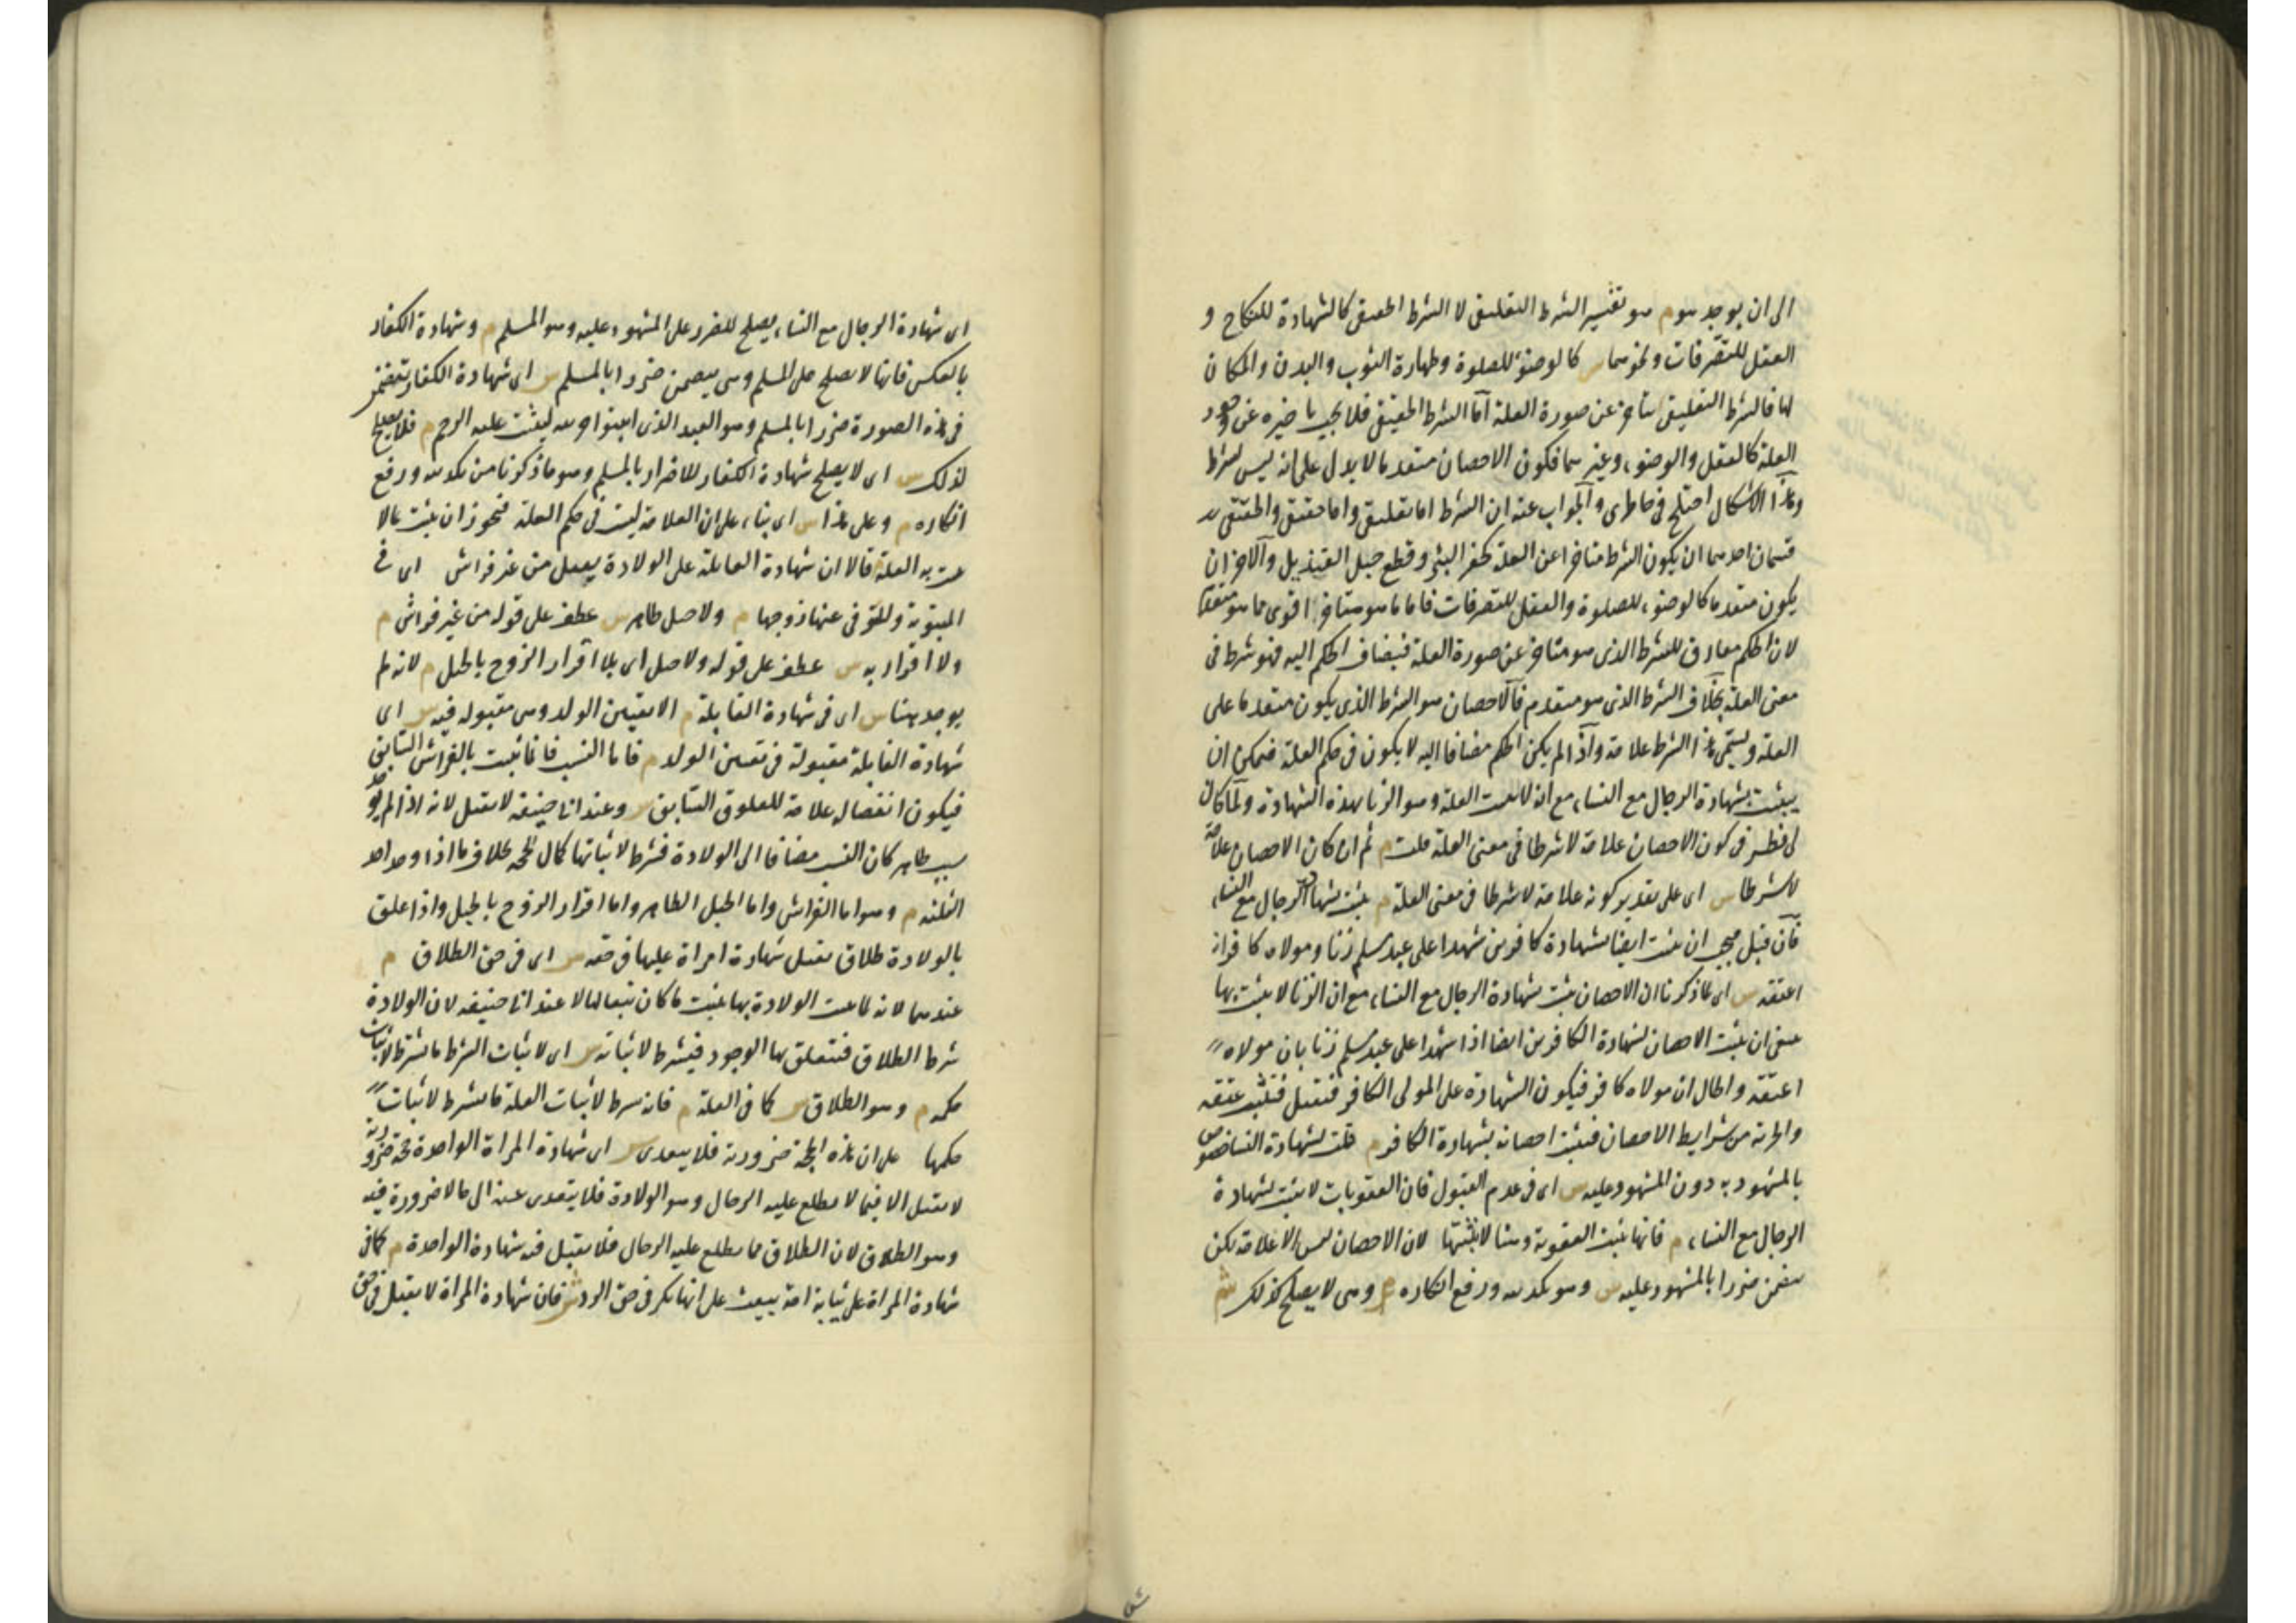 الى ان يوجد هو م هو تفسير الشرط التعليقى لا الشرط الحقيقى كالشهادة للنكاح و
العقل للتصرفات ونحوهما س كالوضوء للصلوة وطهارة الثوب والبدن والمكان
لها فالشرط التعليقى متأخر عن صورة العلة اما الشرط الحقيقى فلا يجب تاخيره عن وجود
العلة كالعقل والوضوء وغيرهما فكون الاحصان متقدما لا يدل على انه ليس بشرط
وهذا الاشكال اختلج فى خاطرى والجواب عنه ان الشرط اما تعليقى واما حقيقى والحقيقى
قسمان احدهما ان يكون الشرط متاخرا عن العلة كحفر البئر وقطع حبل القنديل والآخر ان
يكون متقدما كالوضوء للصلوة والعقل للتصرفات فاما ما هو متاخر اقوى مما هو متقدم
لان الحكم مقارن للشرط الذى هو متاخر عن صورة العلة فيضاف الحكم اليه فهو شرط فى
معنى العلة بخلاف الشرط الذى هو متقدم فالاحصان هو الشرط الذى يكون متقدما على
العلة ويسمى هذا الشرط علامة واذا لم يكن الحكم مضافا اليه لا يكون فى حكم العلة فيمكن ان
يثبت بشهادة الرجال مع النساء مع انه لا يثبت العلة وهو الزنا بهذه الشهادة ولما كان
لى نظر فى كون الاحصان علامة لا شرطا فى معنى العلة قلت م ثم ان كان الاحصان علامة
لا شرطا س اى على تقدير كونه علامة لا شرطا فى معنى العلة م يثبت بشهادة الرجال مع النساء
فان قيل فيجب ان يثبت ايضا بشهادة كافرين شهدا على عبد مسلم زنا ومولاه كافر انه
اعتقه س اى لما ذكرنا ان الاحصان يثبت بشهادة الرجال مع النساء مع ان الزنا لا يثبت بها
ينبغى ان يثبت الاحصان بشهادة الكافرين ايضا اذا شهدا على عبد مسلم زنا بان مولاه
اعتقه والحال ان مولاه كافر فيكون الشهادة على المولى الكافر فتقبل فتثبت عتقه
والحرية من شرايط الاحصان فيثبت احصانه بشهادة الكافر م قلت لشهادة النسا خصوص
بالمشهود به دون المشهود عليه س اى فى عدم القبول فان العقوبات لا يثبت بشهادة
الرجال مع النساء م فانها تثبت العقوبة وهنا لا تثبتها لان الاحصان ليس الا علامة لكن
يتضمن ضررا بالمشهود عليه س وهو تكذيبه ورفع انكاره م وهى لا يصلح لذلك ش
اى شهادة الرجال مع النساء يصلح للضرر على المشهود عليه وهو المسلم م وشهادة الكفار
بالعكس فانها لا يصلح على المسلم وهى يتضمن ضررا بالمسلم س اى شهادة الكفار يتضمن
فى هذه الصورة ضررا بالمسلم وهو العبد الذى اثبتوا حريته ليثبت عليه الرجم م فلا يصلح
لذلك س اى لا يصلح شهادة الكفار للاضرار بالمسلم وهو ما ذكرنا من تكذيبه ورفع
انكاره م وعلى هذا س اى بناء على ان العلامة ليست فى حكم العلة فيجوز ان يثبت بما لا
يثبت به العلة قالا ان شهادة القابلة على الولادة يقبل من غير فراش اى فى
المبتوتة والمتوفى عنها زوجها م ولا حبل ظاهر س عطف على قوله من غير فراش م
ولا اقرار به س عطف على قوله ولا حبل اى بلا اقرار الزوج بالحبل م لانه لم
يوجد هنا س اى فى شهادة القابلة م الا تعيين الولد وهى مقبولة فيه س اى
شهادة القابلة مقبولة فى تعيين الولد م فاما النسب فانما يثبت بالفراش السابق
فيكون انفصاله علامة للعلوق السابق س وعند ابى حنيفة لا يقبل لانه اذا لم يوجد
سبب ظاهر كان النسب مضافا الى الولادة فشرط لاثباتها كمال الحجة بخلاف ما اذا وجد احد
الثلثة م وهو اما الفراش واما الحبل الظاهر واما اقرار الزوج بالحبل واذا علق
بالولادة طلاق يقبل شهادة امراة عليها فى حقه س اى فى حق الطلاق م
عندهما لانه لما ثبت الولادة بها يثبت ما كان تبعا لها لا عند ابى حنيفة لان الولادة
شرط الطلاق فتتعلق بها الوجود فيشرط لاثباته س اى لاثبات الشرط ما يشترط لاثبات
حكمه م وهو الطلاق س كما فى العلة م فانه يشرط لاثبات العلة ما يشرط لاثبات
حكمها على ان هذه الحجة ضرورية فلا يتعدى س اى شهادة المراة الواحدة حجة ضرورية
لا يقبل الا فيما لا يطلع عليه الرجال وهو الولادة فلا يتعدى عنه الى ما لا ضرورة فيه
وهو الطلاق لان الطلاق مما يطلع عليه الرجال فلا يقبل فيه شهادة الواحدة م كما فى
شهادة المراة على ثيابة امة بيعت على انها بكر فى حق الرد ش فان شهادة المراة لا يقبل فى حق